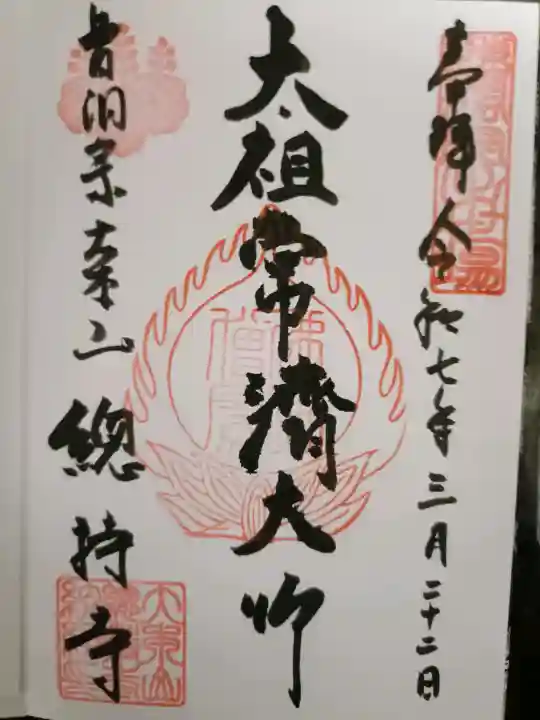 奉拝 令和七年三月二十二日
太祖常濟大師
曹洞宗大本山 總持寺